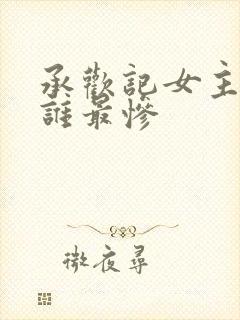 承歡記女主
誰最慘
微夜尋